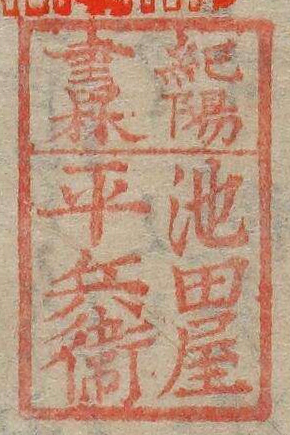 紀陽
書林
池田屋
平兵衞